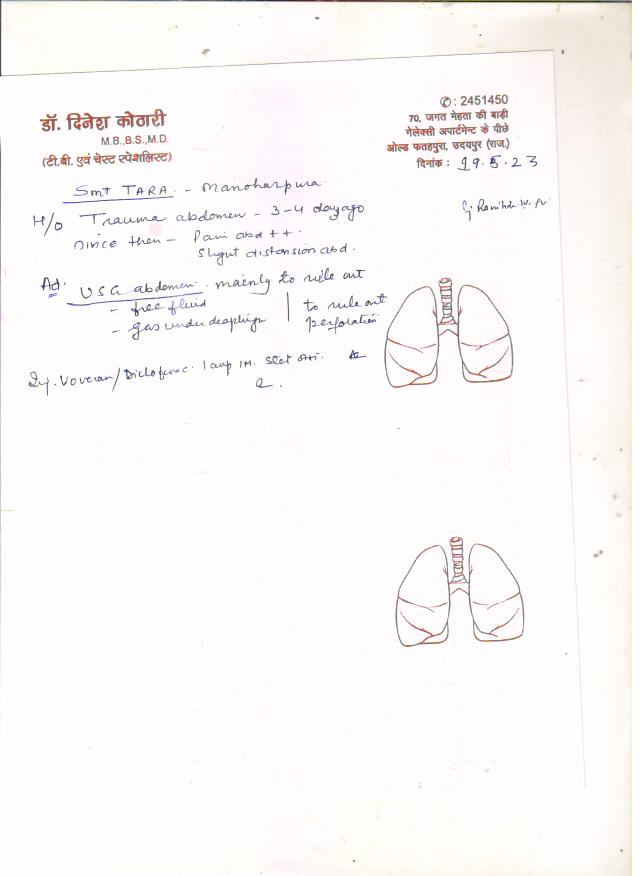 डॉ. दिनेश कोठारी
M.B.,B.S.,M.D.
(टी.बी. एवं चेस्ट स्पेशलिस्ट)
✆ : 2451450
70, जगत मेहता की बाड़ी
गेलेक्सी अपार्टमेन्ट के पीछे
ओल्ड फतहपुरा, उदयपुर (राज.)
दिनांक : 19.5.23
Smt TARA. - Manoharpura
H/o Trauma abdomen - 3-4 day ago
Since then - Pain abd ++
Slight distension abd.
Ad. USG abdomen. mainly to rule out
- free fluid
- gas under deaphrgm
to rule out
perforation
Inj. Voveran/Diclofenec. 1 amp IM. Stat